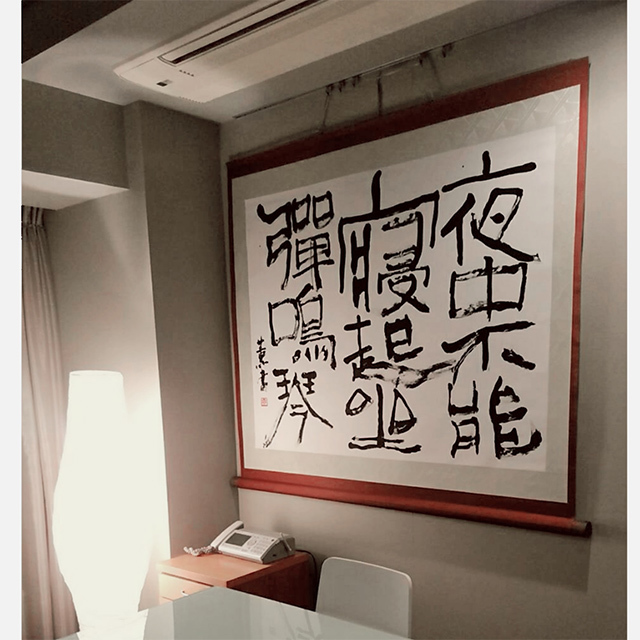 夜中不能
寢起坐
彈鳴琴